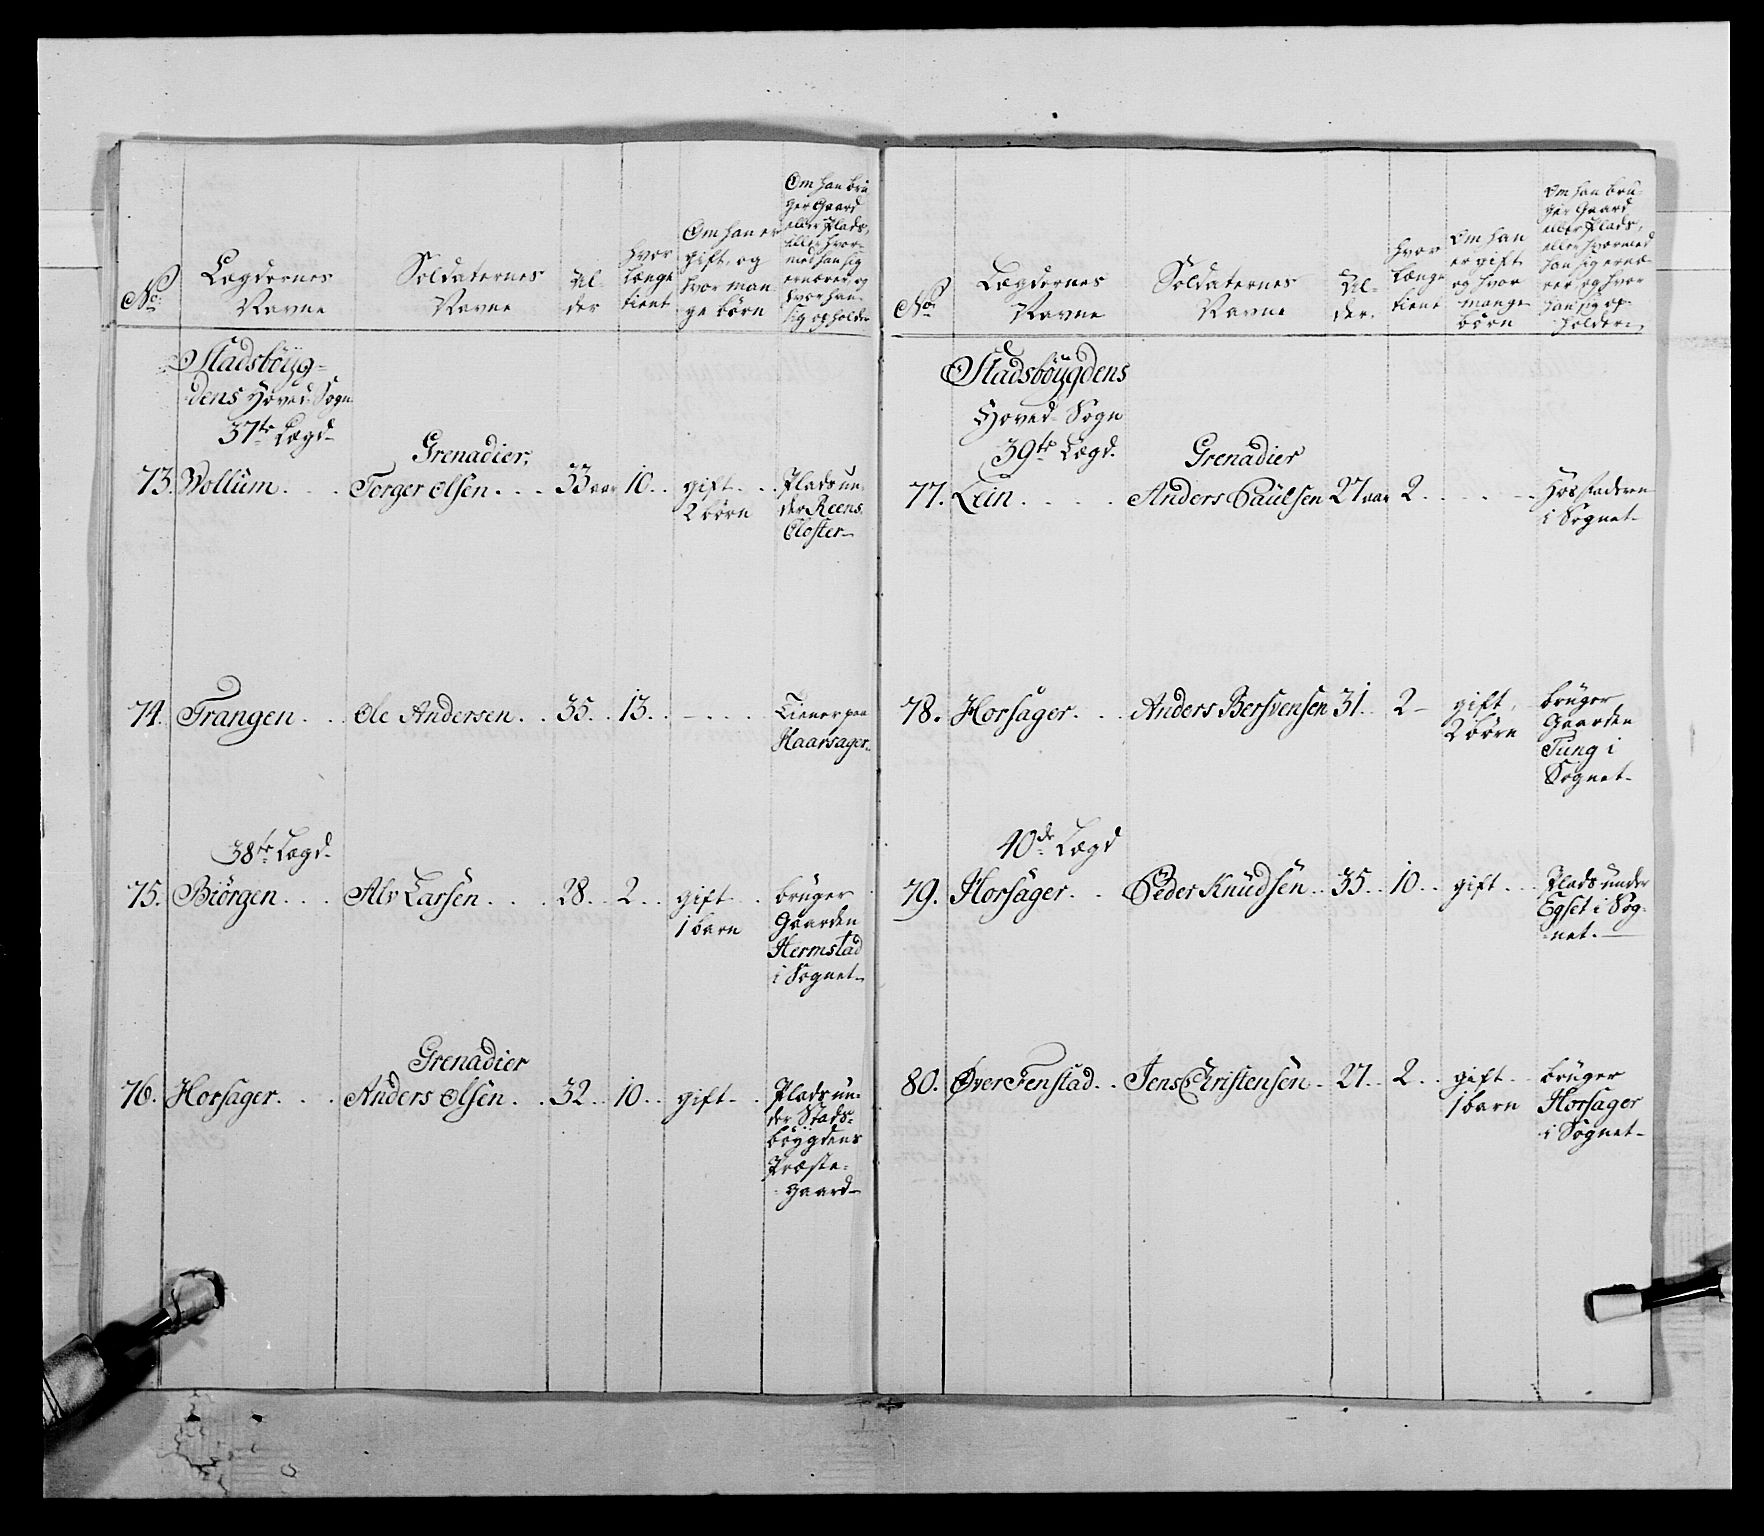 No:
Lægdernes
Navne
Soldaternes
Navne
Al-
der
hvor
længe
tient
Om han er
gift, og
hvor man
ge børn
Om han bru
ger Gaard
eller Plads,
eller hvor-
med han sig
ernærer, og
hvor han
sig opholder
Stadsböyg-
dens Hoved-Sogn
37te Lægd
Grenadier,
73. Wollum. . . . Torger Olsen. . . 33 aar 10. . gift. . . Plads un-
2 børn der Reens
Closter
74. Trangen . . Ole Andersen. . 35. . 13. . - . . . Tiener paa
Haarsager.
38te Lægd.
75. Biörgen. . . . Alv Larsen. . . . 28. . 2. . . gift. . bruger
1 barn Gaarden
Hermstad
i Sognet
Grenadier
76. Horsager. . . . Anders Olsen. . . 32. . 10. . gift. . Plads un-
der Stads-
böygdens
Præste-
gaard
No:
Lægdernes
Navne
Soldaternes
Navne
Al-
der.
hvor
længe
tient
Om han
er gift
og hvor
mange
børn
Om han bru-
ger Gaard
eller Plads,
eller hvormed
han sig ernæ-
rer, og hvor
han sig op-
holder
Stadsböygdens
Hoved-Sogn
39te Lægd.
Grenadier
77. Lein . . . . . Anders Paulsen 27 aar 2. . . . . . Hos Faderen
i Sognet
78. Horsager. . . Anders Bersvensen 31. . 2 gift, bruger
2 børn Gaarden
Tung i
Sognet
40de Lægd
79. Horsager. . . Peder Knudsen . . 35. . 10. . gift. . . Plads under
Egset i Sog-
net.
80. Øver Fenstad. . Jens Christensen. . 27. . 2. . . gift. . bruger
1 barn Horsager
i Sognet